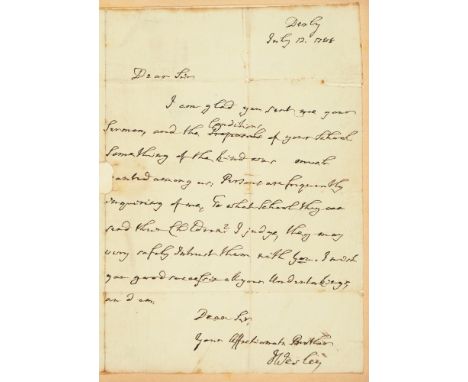 Derby
July 12. 1788
Dear Sir
I am glad you sent me your
Conditions
Sermon, and the Proposals of your School
Something of the kind was much
wanted among us, Persons are frequently
inquiring of me, To what School they can
send their Children? I judge, they may
very safely Intrust them with You. I wish
you good success in all your Undertakings
and am
Dear Sir,
Your Affectionate Brother
JWesley